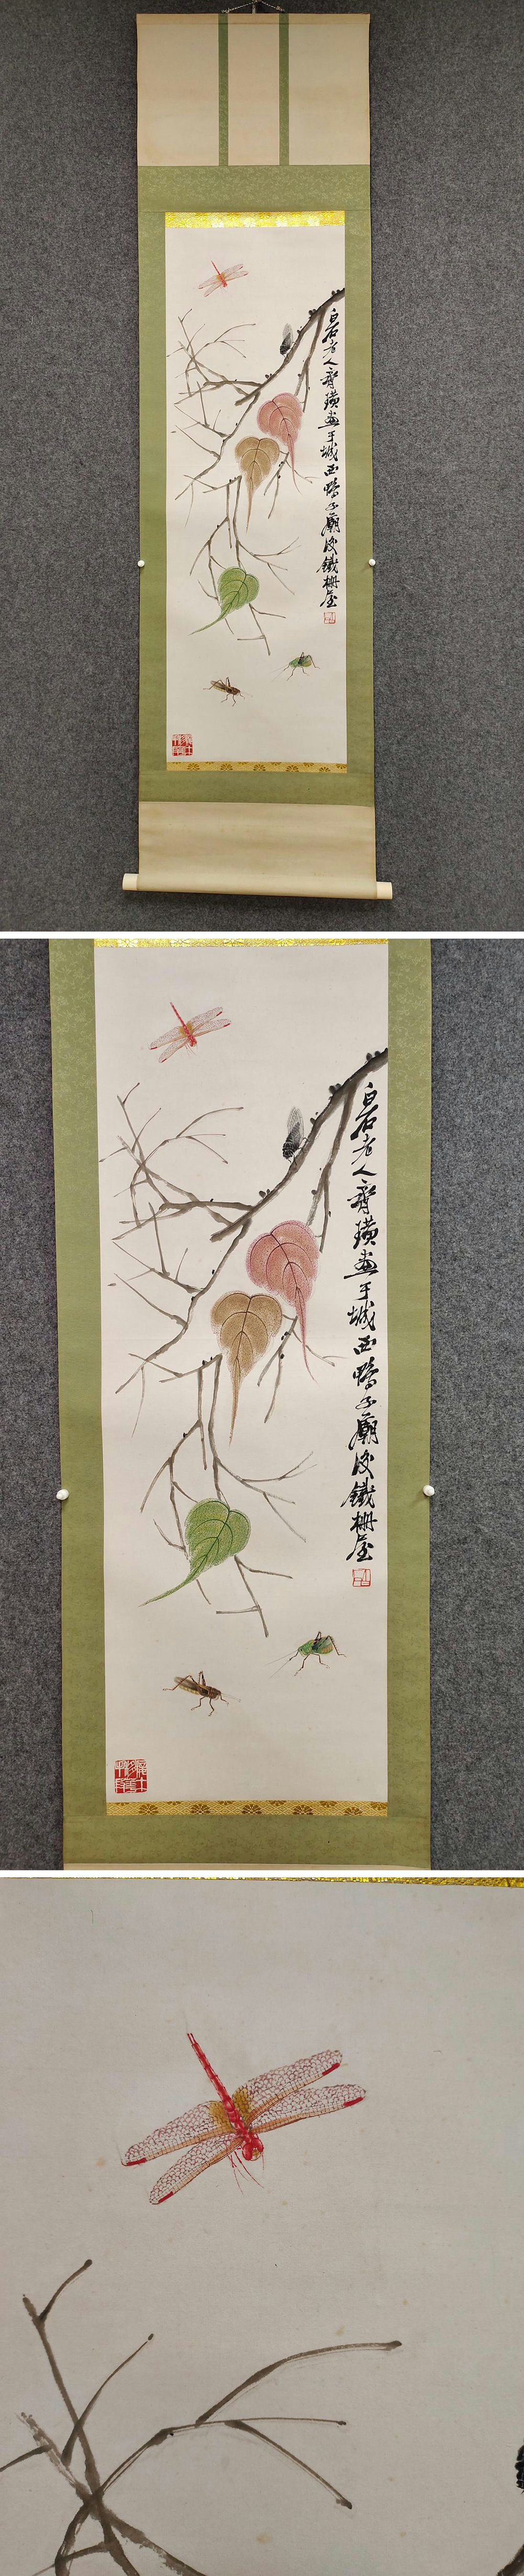 白石老人齊璜畫于城西鴨子廟後鐵柵屋
白石老人齊璜畫于城西鴨子廟後鐵柵屋